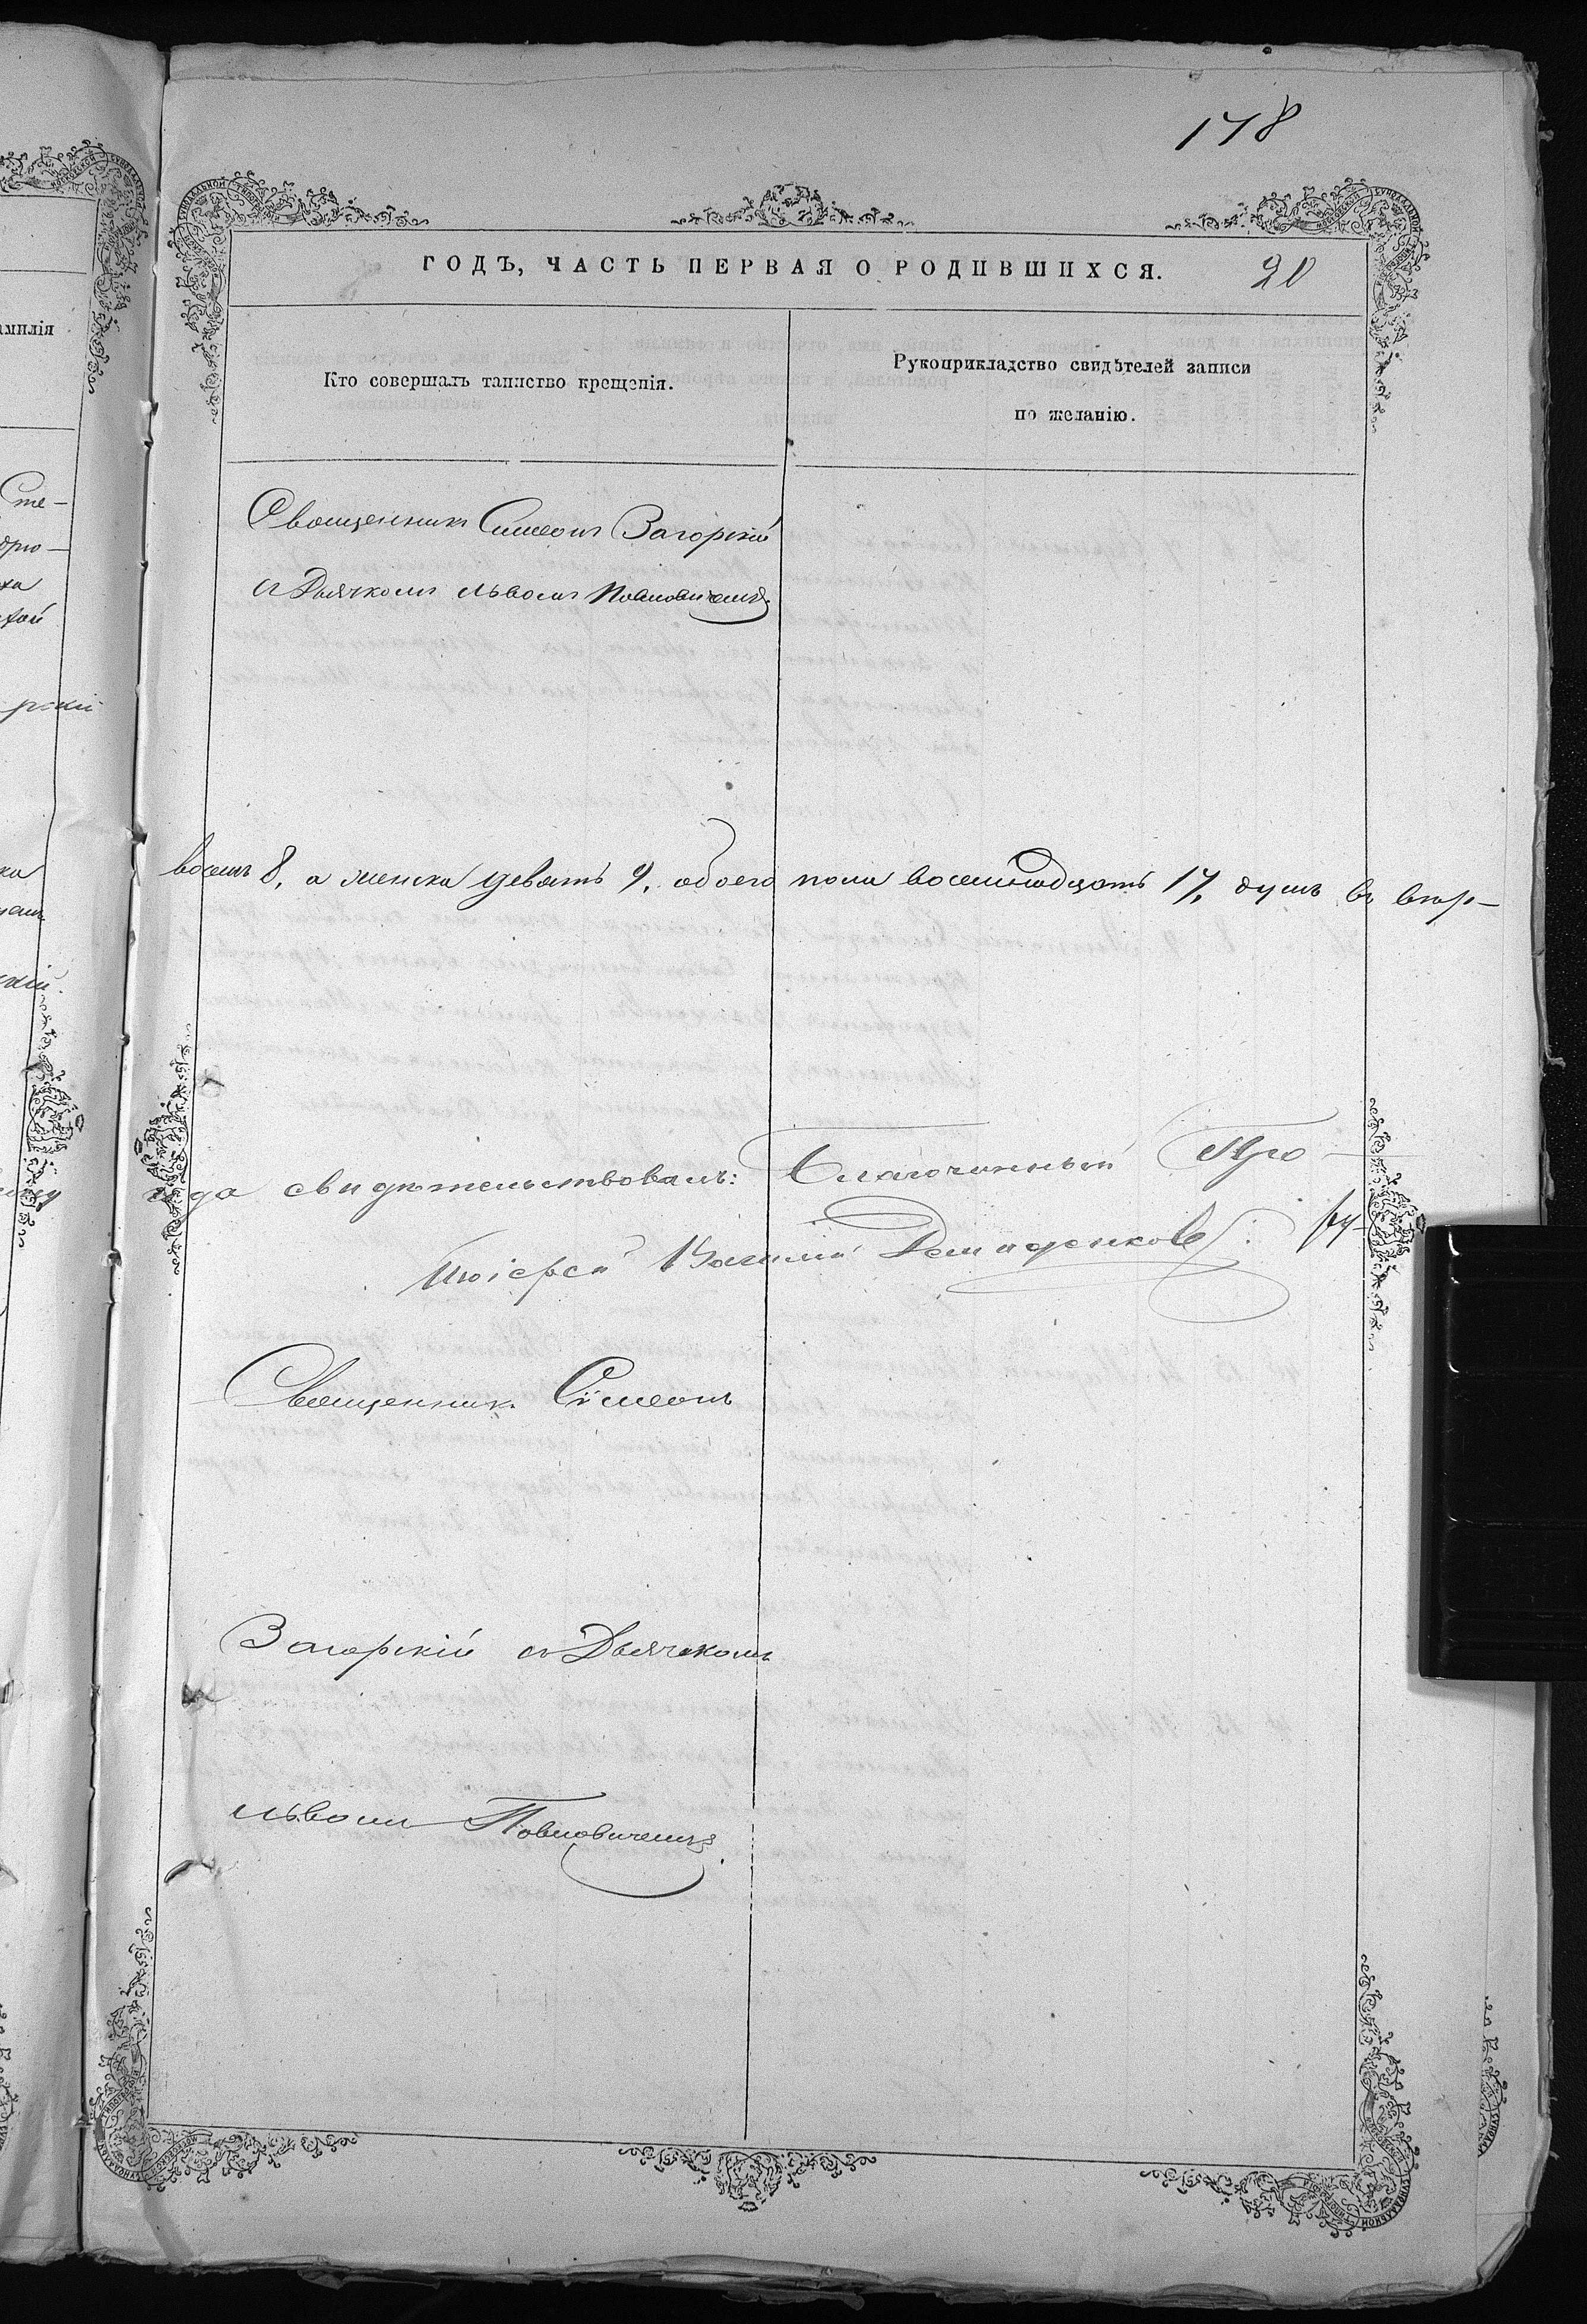 178
ГОДЪ, ЧАСТЬ ПЕРВАЯ О РОДИВШИХСЯ. 20
Кто совершалъ таинство крещенія.
Рукоприкладство свидѣтелей записи
по желанію.
Священникъ Симеонъ Загорскій
съ Дьячкомъ Львомъ Павловичемъ.
восемъ 8, а женска девять 9, обоего пола 17, душъ въ втор-
да свидѣтельствовалъ: Благочинный Про-
тоіерей Василій Демиденковъ.
Священникъ Сімеонъ
Загорскій съ Дьячкомъ
Львомъ Павловичемъ.
амилія
Сте-